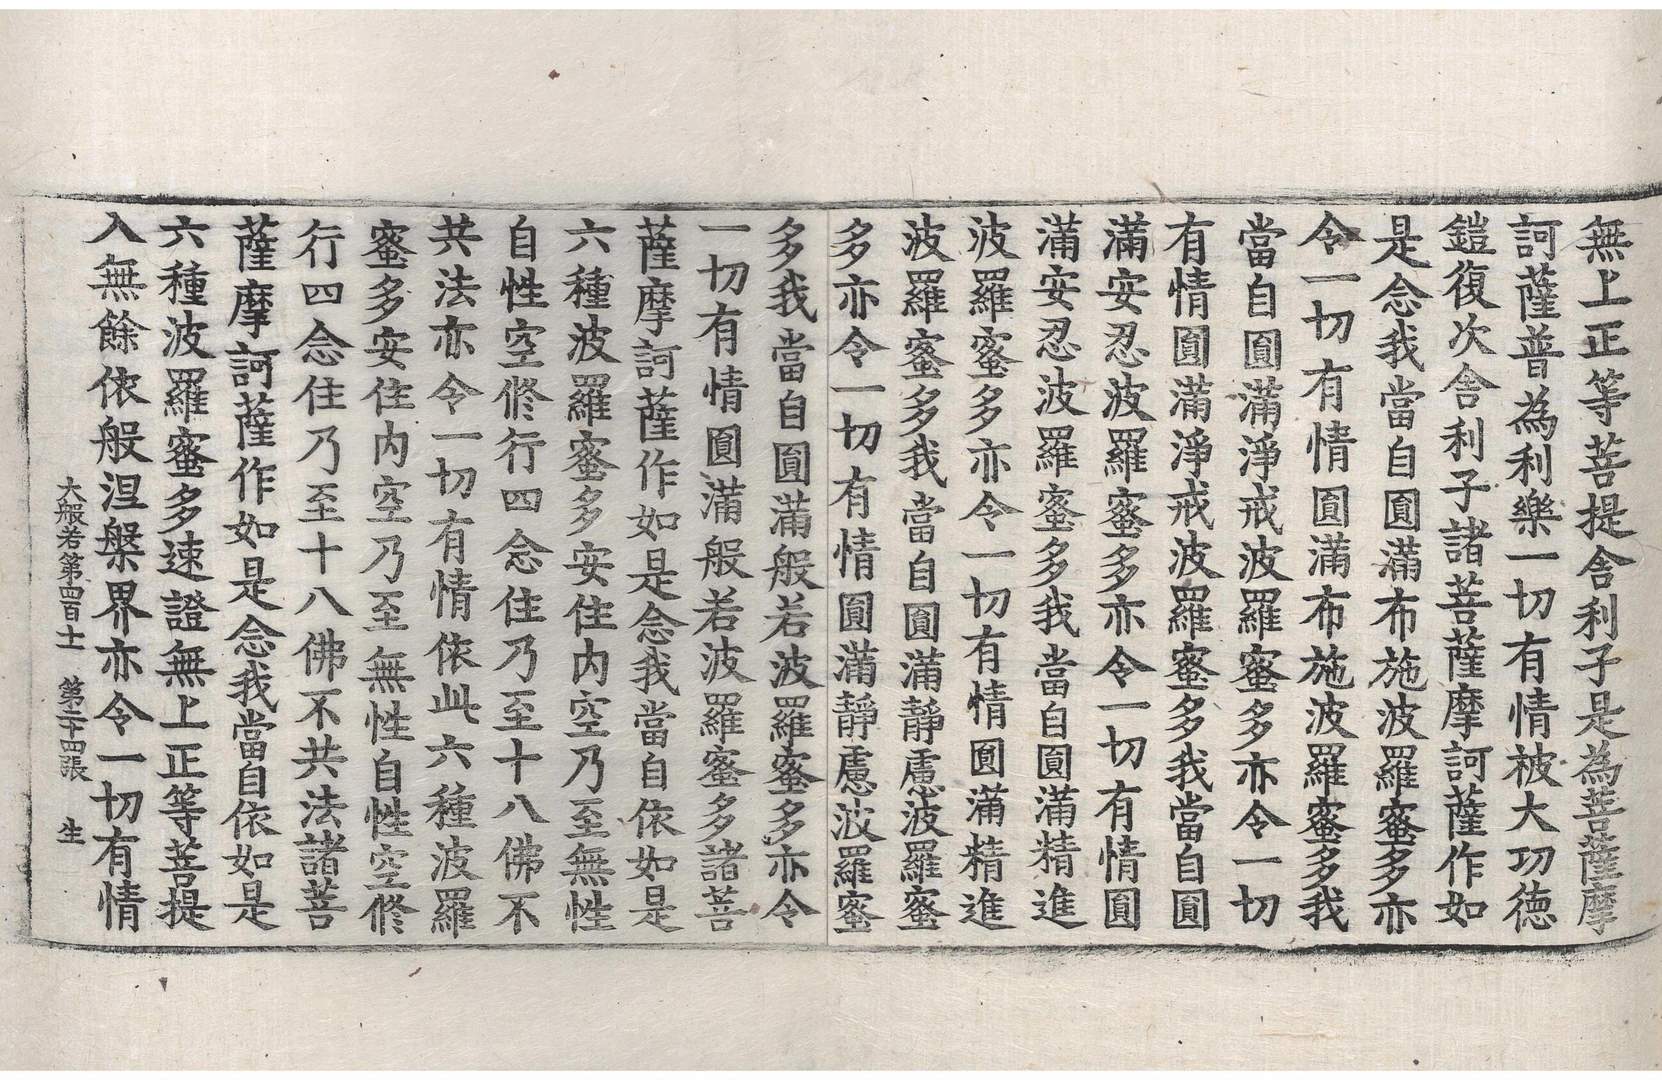 無上正等菩提舍利子是為菩薩摩
訶薩普為利樂一切有情被大功德
鎧復次舍利子諸菩薩摩訶薩作如
是念我當自圓滿布施波羅蜜多亦
令一切有情圓滿布施波羅蜜多我
當自圓滿淨戒波羅蜜多亦令一切
有情圓滿淨戒波羅蜜多我當自圓
滿安忍波羅蜜多亦令一切有情圓
滿安忍波羅蜜多我當自圓滿精進
波羅蜜多亦令一切有情圓滿精進
波羅蜜多我當自圓滿靜慮波羅蜜
多亦令一切有情圓滿靜慮波羅蜜
多我當自圓滿般若波羅蜜多亦令
一切有情圓滿般若波羅蜜多諸菩
薩摩訶薩作如是念我當自依如是
六種波羅蜜多安住內空乃至無性
自性空修行四念住乃至十八佛不
共法亦令一切有情依此六種波羅
蜜多安住內空乃至無性自性空修
行四念住乃至十八佛不共法諸菩
薩摩訶薩作如是念我當自依如是
六種波羅蜜多速證無上正等菩提
入無餘依般涅槃界亦令一切有情
大般若第四百十一　第二十四張　生